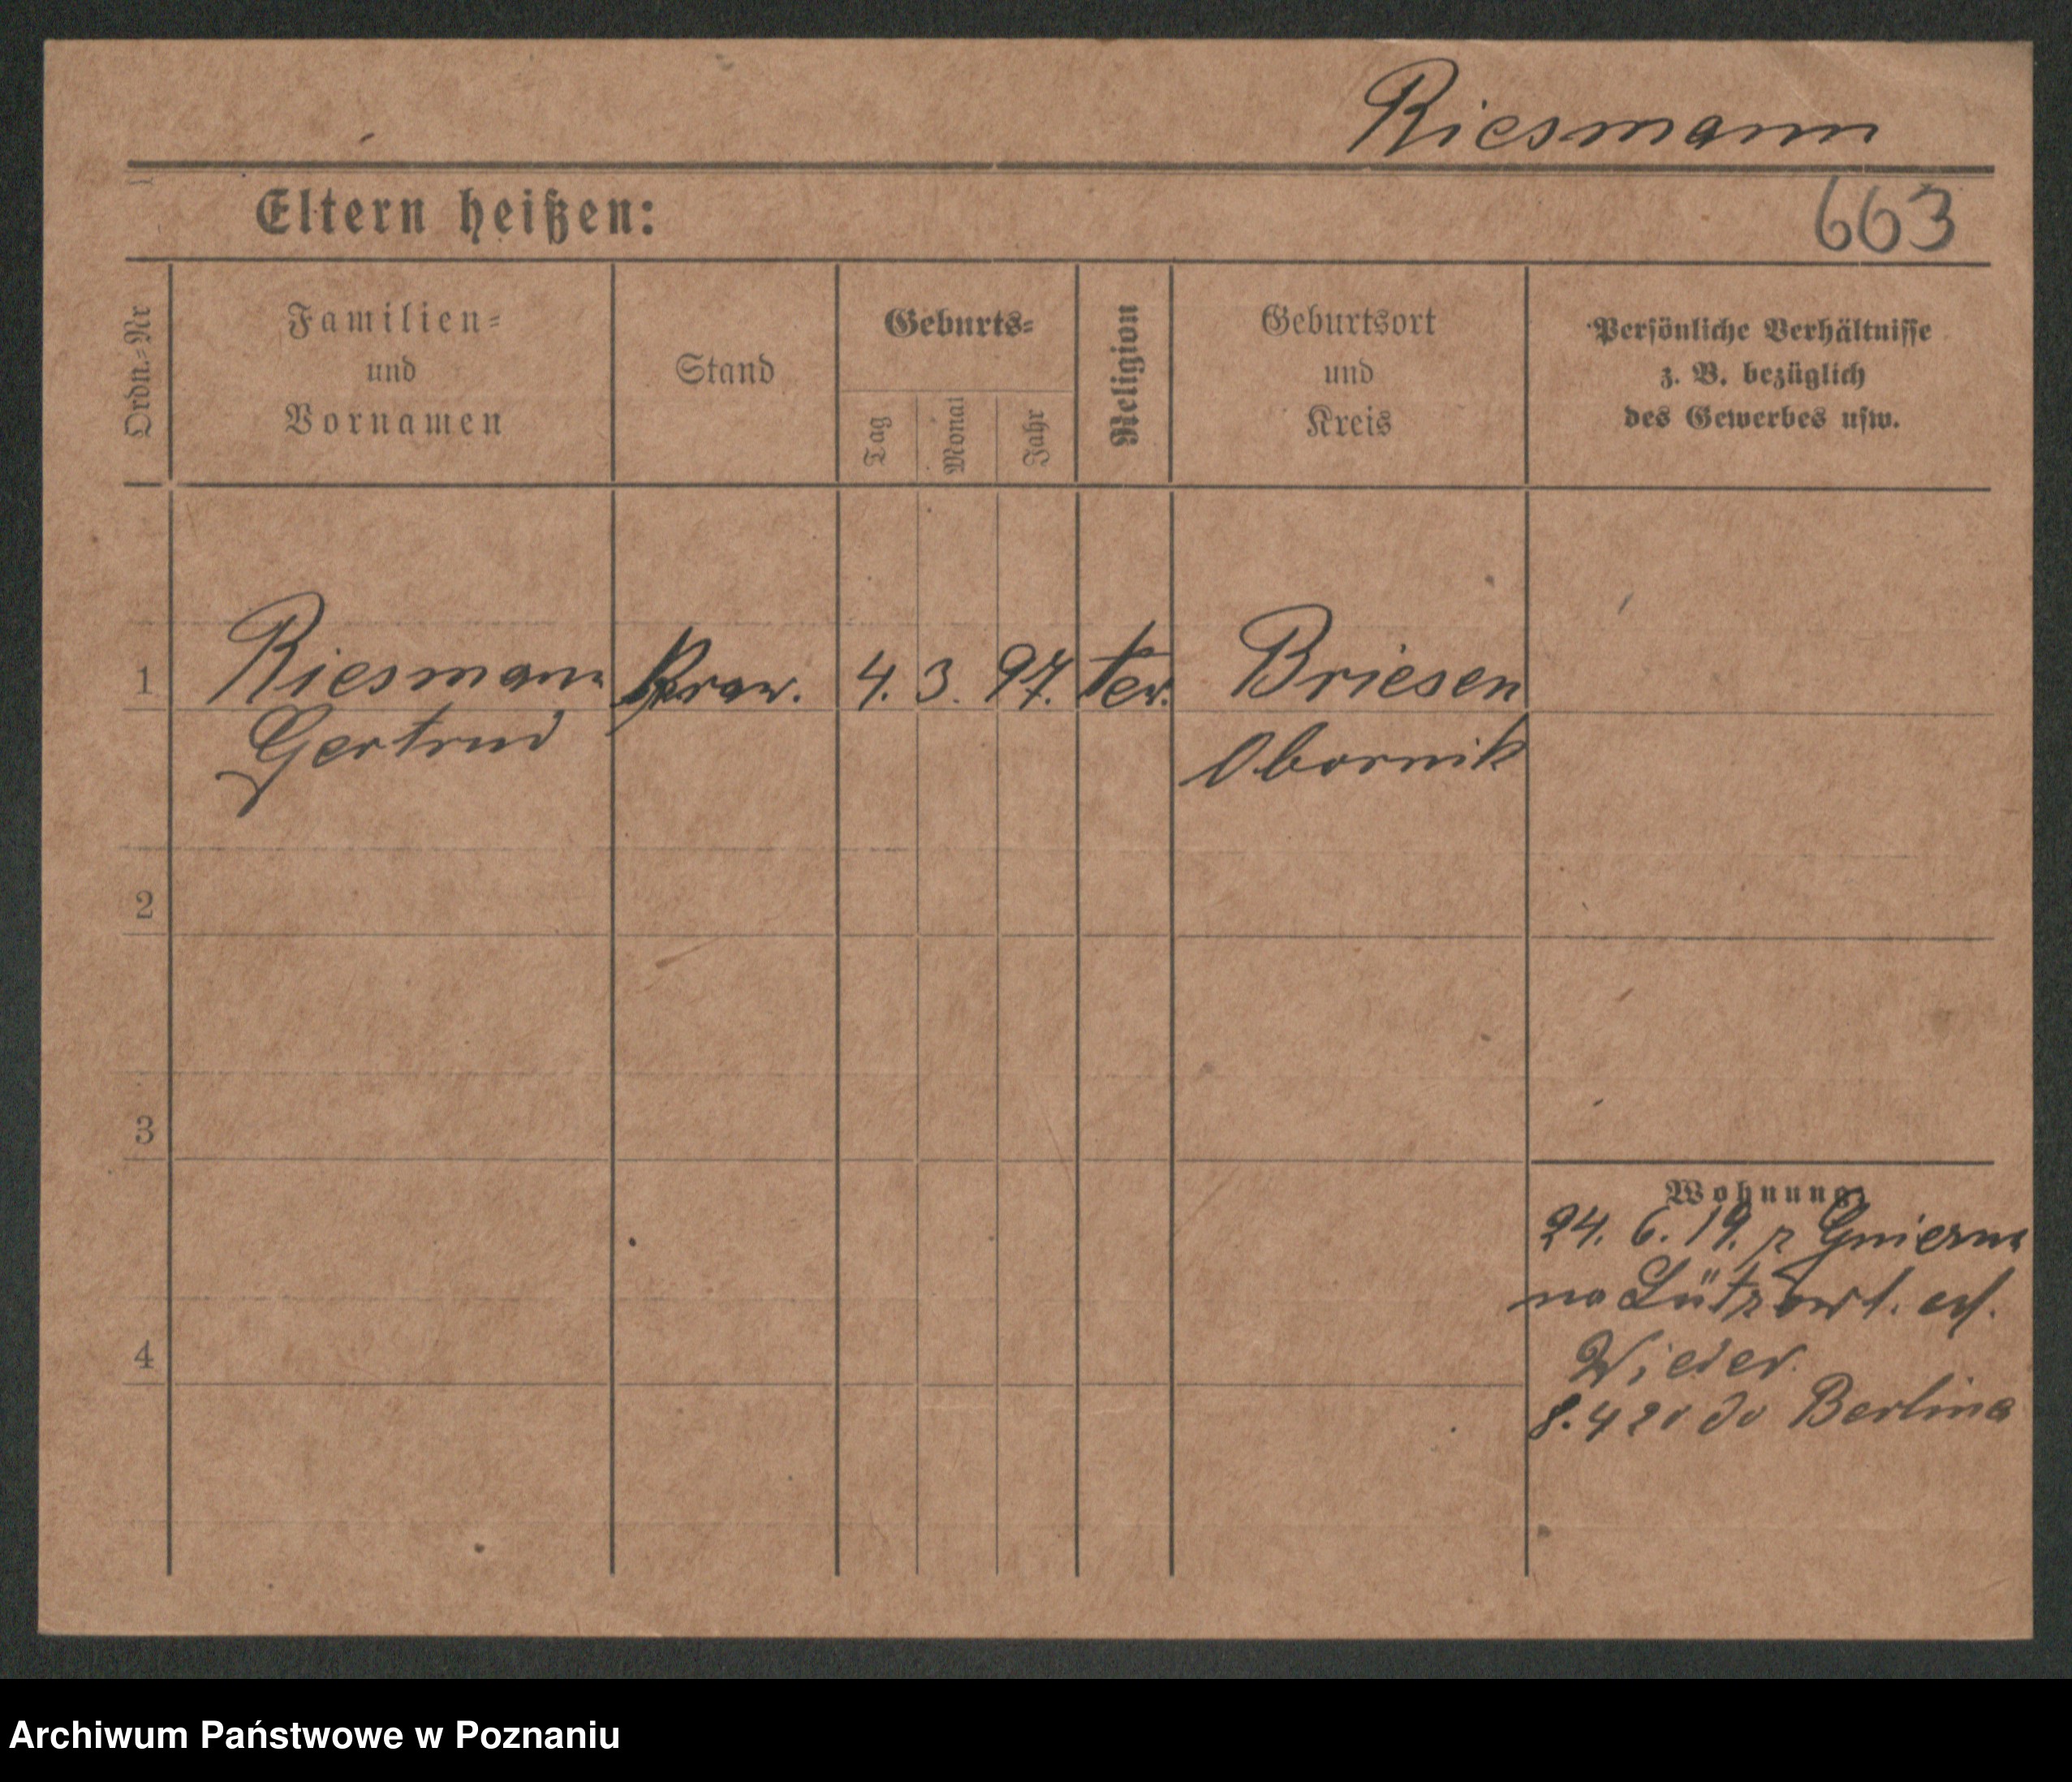 Riesmann
663
Eltern heißen:
Ordn.=Nr
Familien=
und
Vornamen
Stand
Geburts=
Tag
Monat
Jahr
Religion
Geburtsort
und
Kreis
Persönliche Verhältnisse
z. B. bezüglich
des Gewerbes usw.
1 Riesmann 4. 3. 97. Briesen
Gertrud Obornik
2
3
4
Wohnung
24. 6. 19. z
na
8. 4 20 do Berlina
Archiwum Państwowe w Poznaniu